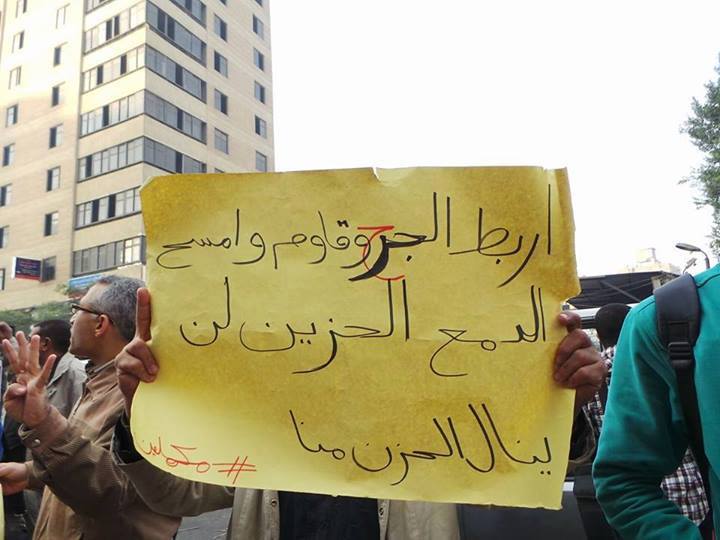 اربط الجرح وقاوم وامسح
الدمع الحزين لن
ينال الحزن منا
#مكملين